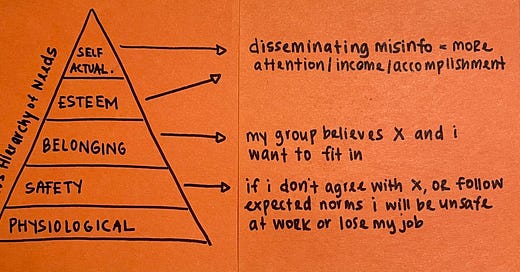 s Hierarchy of Needs
SELF
ACTUAL.
ESTEEM
BELONGING
SAFETY
PHYSIOLOGICAL
disseminating misinfo = more
attention/income/accomplishment
my group believes X and i
want to fit in
if i don't agree with X, or follow
expected norms i will be unsafe
at work or lose my job